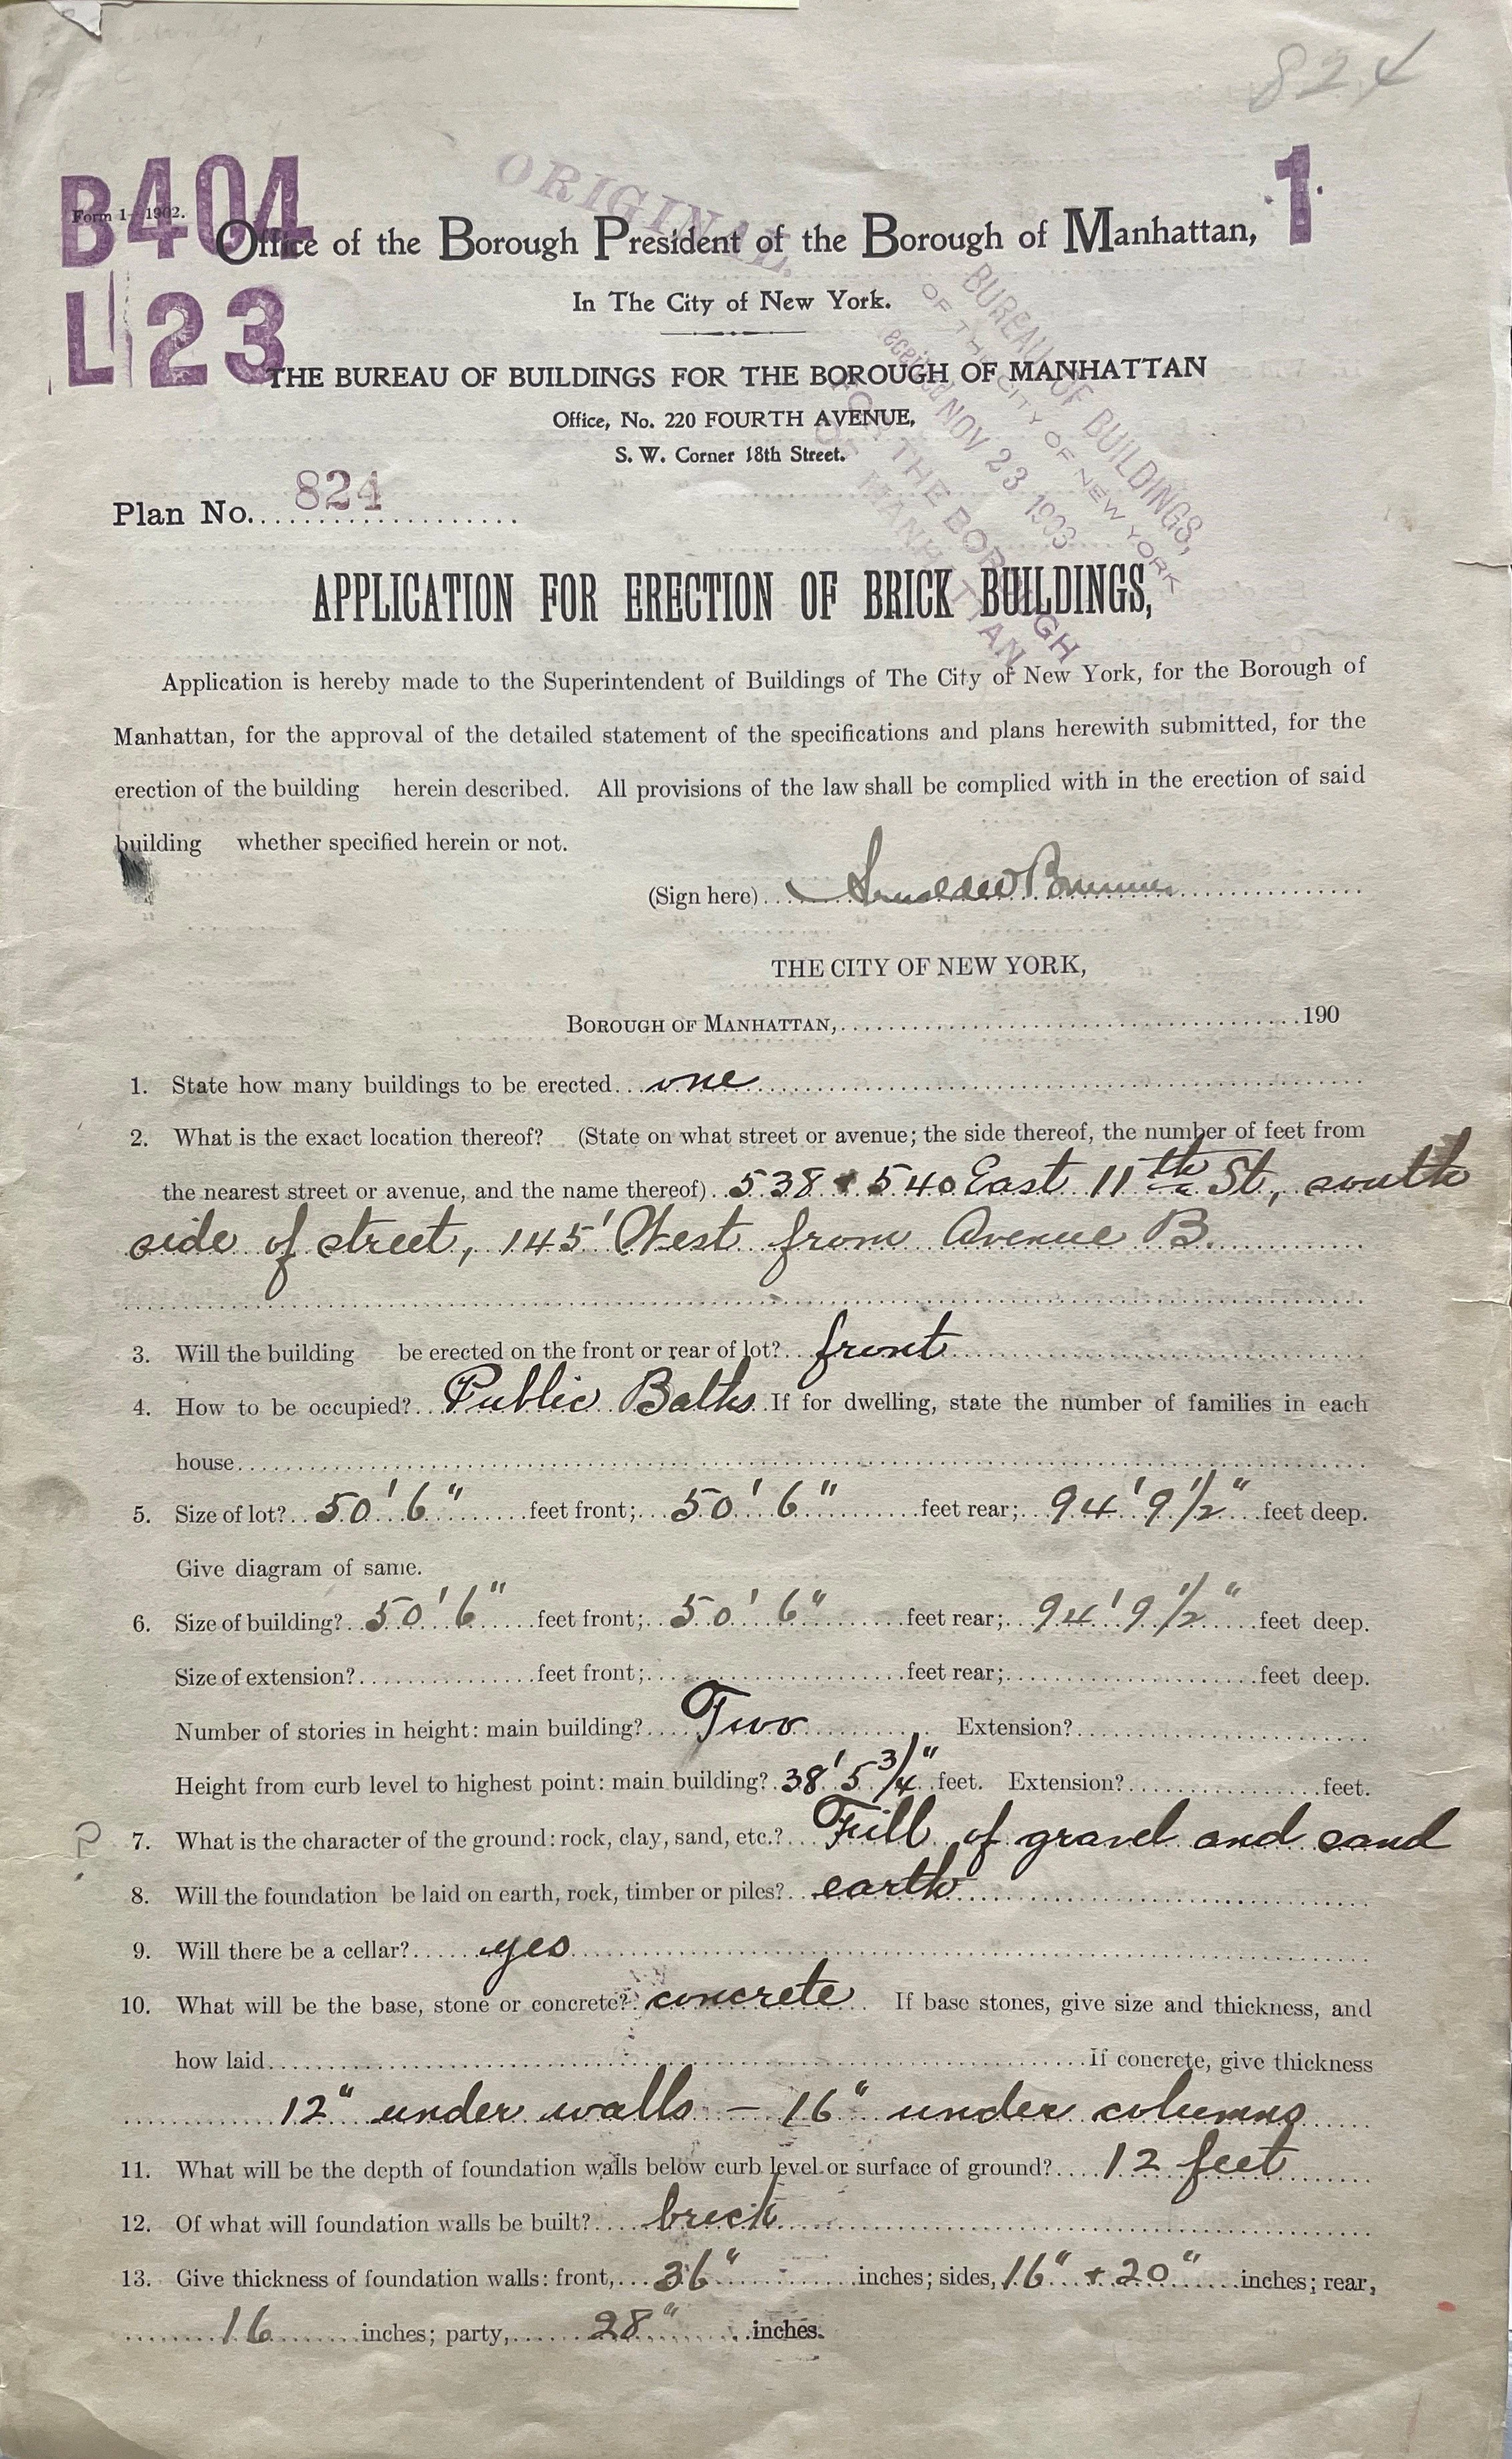 824
B404
1
L 23
ORIGINAL.
Form 1—1902.
Office of the Borough President of the Borough of Manhattan,
In The City of New York.
THE BUREAU OF BUILDINGS FOR THE BOROUGH OF MANHATTAN
Office, No. 220 FOURTH AVENUE,
S. W. Corner 18th Street.
BUREAU OF BUILDINGS,
OF THE CITY OF NEW YORK
eceived NOV 23 1903
FOR THE BOROUGH
OF MANHATTAN
Plan No. 824
APPLICATION FOR ERECTION OF BRICK BUILDINGS,
Application is hereby made to the Superintendent of Buildings of The City of New York, for the Borough of
Manhattan, for the approval of the detailed statement of the specifications and plans herewith submitted, for the
erection of the building herein described. All provisions of the law shall be complied with in the erection of said
building whether specified herein or not.
(Sign here) Arnold W Brunner
THE CITY OF NEW YORK,
BOROUGH OF MANHATTAN, 190
1. State how many buildings to be erected one
2. What is the exact location thereof? (State on what street or avenue; the side thereof, the number of feet from
the nearest street or avenue, and the name thereof) 538 & 540 East 11th St, south
side of street, 145' West from Avenue B.
3. Will the building be erected on the front or rear of lot? front
4. How to be occupied? Public Baths If for dwelling, state the number of families in each
house
5. Size of lot? 50' 6" feet front; 50' 6" feet rear; 94' 9 1/2" feet deep.
Give diagram of same.
6. Size of building? 50' 6" feet front; 50' 6" feet rear; 94' 9 1/2" feet deep.
Size of extension? feet front; feet rear; feet deep.
Number of stories in height: main building? Two Extension?
Height from curb level to highest point: main building? 38' 5 3/4" feet. Extension? feet.
? 7. What is the character of the ground: rock, clay, sand, etc.? Fill of gravel and sand
8. Will the foundation be laid on earth, rock, timber or piles? earth
9. Will there be a cellar? yes
10. What will be the base, stone or concrete? concrete If base stones, give size and thickness, and
how laid If concrete, give thickness
12" under walls — 16" under columns
11. What will be the depth of foundation walls below curb level or surface of ground? 12 feet
12. Of what will foundation walls be built? brick
13. Give thickness of foundation walls: front, 36" inches; sides, 16" & 20" inches; rear,
16 inches; party, 28" inches.